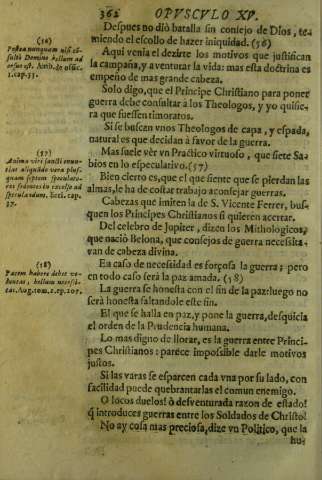 362 OPVSCVLO XV.
Despues no diò batalla sin consejo de Dios, te-
miendo el escollo de hazer iniquidad. (56)
Aqui venia el dezirte los motivos que justifican
la campaña, y aventurar la vida: mas esta doctrina es
empeño de mas grande cabeza.
Solo digo, que el Principe Christiano para poner
guerra debe consultar à los Theologos, y yo quisie-
ra que fuessen timoratos.
Si se buscan vnos Theologos de capa, y espada,
natural es que decidan à favor de la guerra.
Mas suele vèr vn Practico virtuoso, que siete Sa-
bios en lo especulativo. (57)
Bien cierto es, que el que siente que se pierdan las
almas, le ha de costar trabajo aconsejar guerras.
Cabezas que imiten la de S. Vicente Ferrer, bus-
quen los Principes Christianos si quieren acertar.
Del celebro de Jupiter, dizen los Mithologicos,
que naciò Belona, que consejos de guerra necessita-
van de cabeza divina.
En caso de necessidad es forçosa la guerra; pero
en todo caso serà la paz amada. (58)
La guerra se honesta con el fin de la paz: luego no
serà honesta faltandole este fin.
El que se halla en paz, y pone la guerra, desquicia
el orden de la Prudencia humana.
Lo mas digno de llorar, es la guerra entre Princi-
pes Christianos: parece impossible darle motivos
justos.
Si las varas se esparcen cada vna por su lado, con
facilidad puede quebrantarlas el comun enemigo.
O locos duelos! ò desventurada razon de estado!
q̃ introduces guerras entre los Soldados de Christo!
No ay cosa mas preciosa, dize vn Politico, que la
hu-
(56)
Postea nunquam nisi cõ-
sulto Domino bellum ad
1.cap.33.
(57)
Animo viri sancti enun-
tiat aliquãdo vera plus-
quam septem speculato-
res sedentes in excelso ad
speculandum. Eccl. cap.
37.
(58)
Pacem habere debet vo-
luntas, bellum necessi-
tas. Aug. tom. 2. ep. 205.